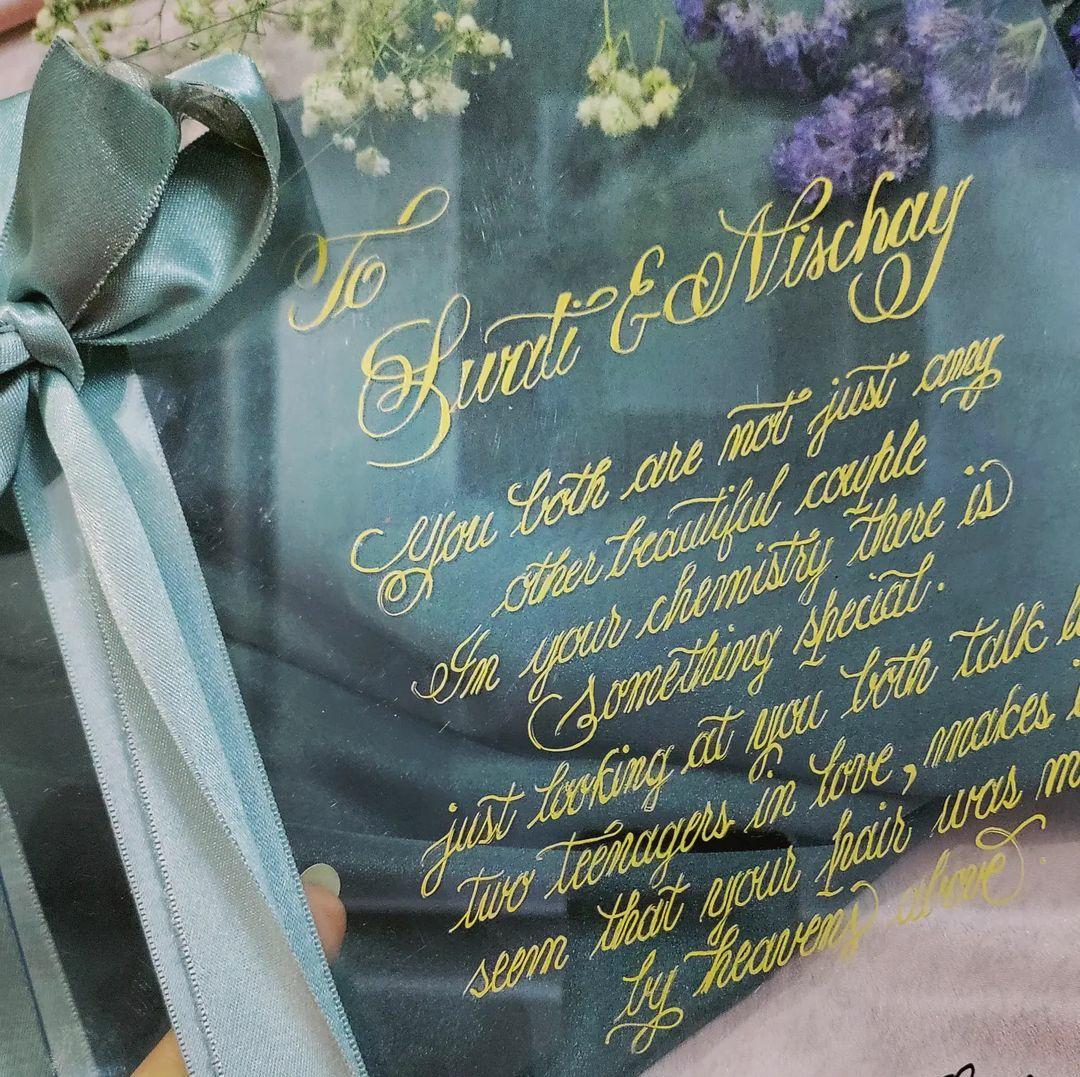 To
Swati & Nischay
You both are not just any
other beautiful couple
In your chemistry there is
something special.
just looking at you both talk
two teenagers in love, makes
seem that your hair was
by heavens above.